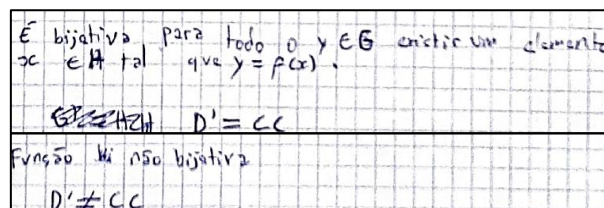 É bijativa para todo o y ∈ G existir um elemento
x ∈ H tal que y = f(x).
D' = CC
Função não bijativa
D' ≠ CC